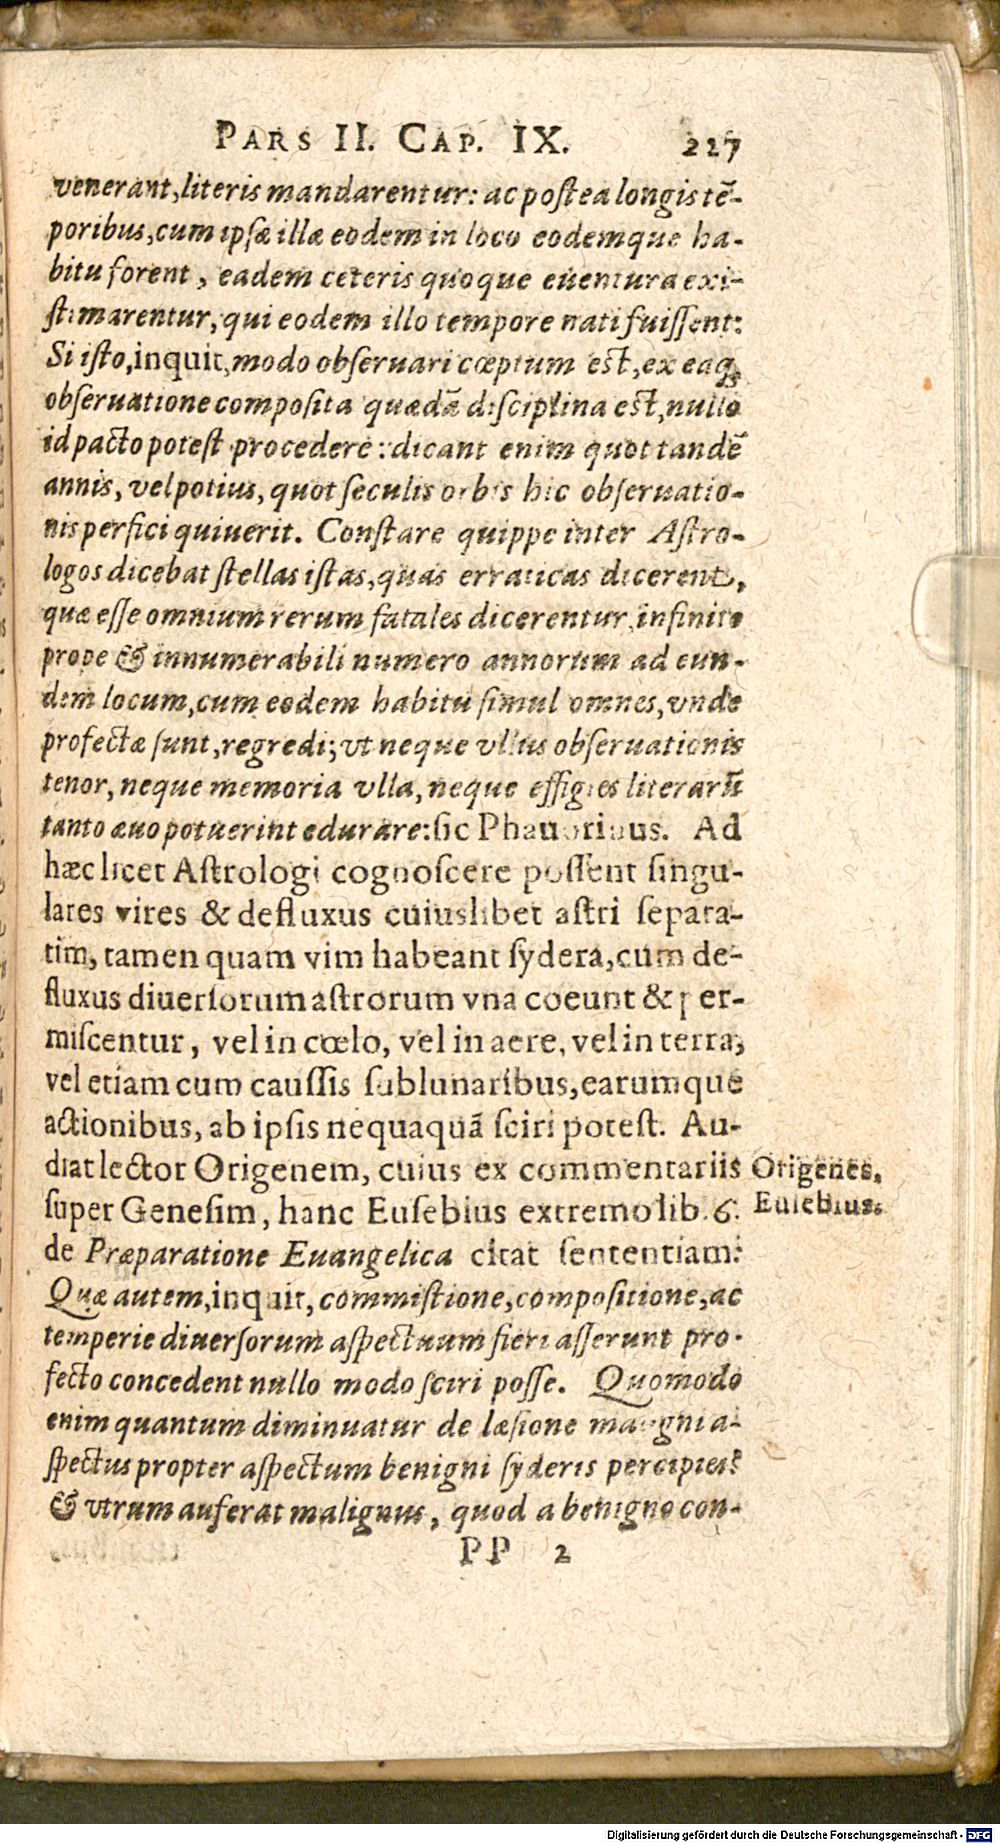 PARS II. CAP. IX. 227
venerant, literis mandarentur: ac postea longis tē-
poribus, cum ipsæ illæ eodem in loco eodemque ha-
bitu forent, eadem ceteris quoque euentura exi-
stimarentur, qui eodem illo tempore nati fuissent:
Si isto, inquit, modo obseruari cœptum est, ex eaq;
obseruatione composita quædā disciplina est, nullo
id pacto potest procedere: dicant enim quot tandē
annis, vel potius, quot seculis orbis hic obseruatio-
nis perfici quiuerit. Constare quippe inter Astro-
logos dicebat stellas istas, quas erraticas dicerent,
quæ esse omnium rerum fatales dicerentur, infinito
prope & innumerabili numero annorum ad eun-
dem locum, cum eodem habitu simul omnes, vnde
profectæ sunt, regredi; vt neque vllus obseruationis
tenor, neque memoria vlla, neque effigies literarū
tanto æuo potuerint edurare: sic Phauorinus. Ad
hæc licet Astrologi cognoscere possent singu-
lares vires & defluxus cuiuslibet astri separa-
tim, tamen quam vim habeant sydera, cum de-
fluxus diuersorum astrorum vna coeunt & per-
miscentur, vel in cœlo, vel in aere, vel in terra,
vel etiam cum caussis sublunaribus, earumque
actionibus, ab ipsis nequaquā sciri potest. Au-
diat lector Origenem, cuius ex commentariis
super Genesim, hanc Eusebius extremo lib. 6.
de Præparatione Euangelica citat sententiam:
Quæ autem, inquit, commistione, compositione, ac
temperie diuersorum aspectuum fieri asserunt pro-
fecto concedent nullo modo sciri posse. Quomodo
enim quantum diminuatur de læsione maligni a-
spectus propter aspectum benigni syderis percipiet?
& vtrum auferat malignus, quod a benigno con-
PP 2
Origenes.
Eusebius.
Digitalisierung gefördert durch die Deutsche Forschungsgemeinschaft - DFG